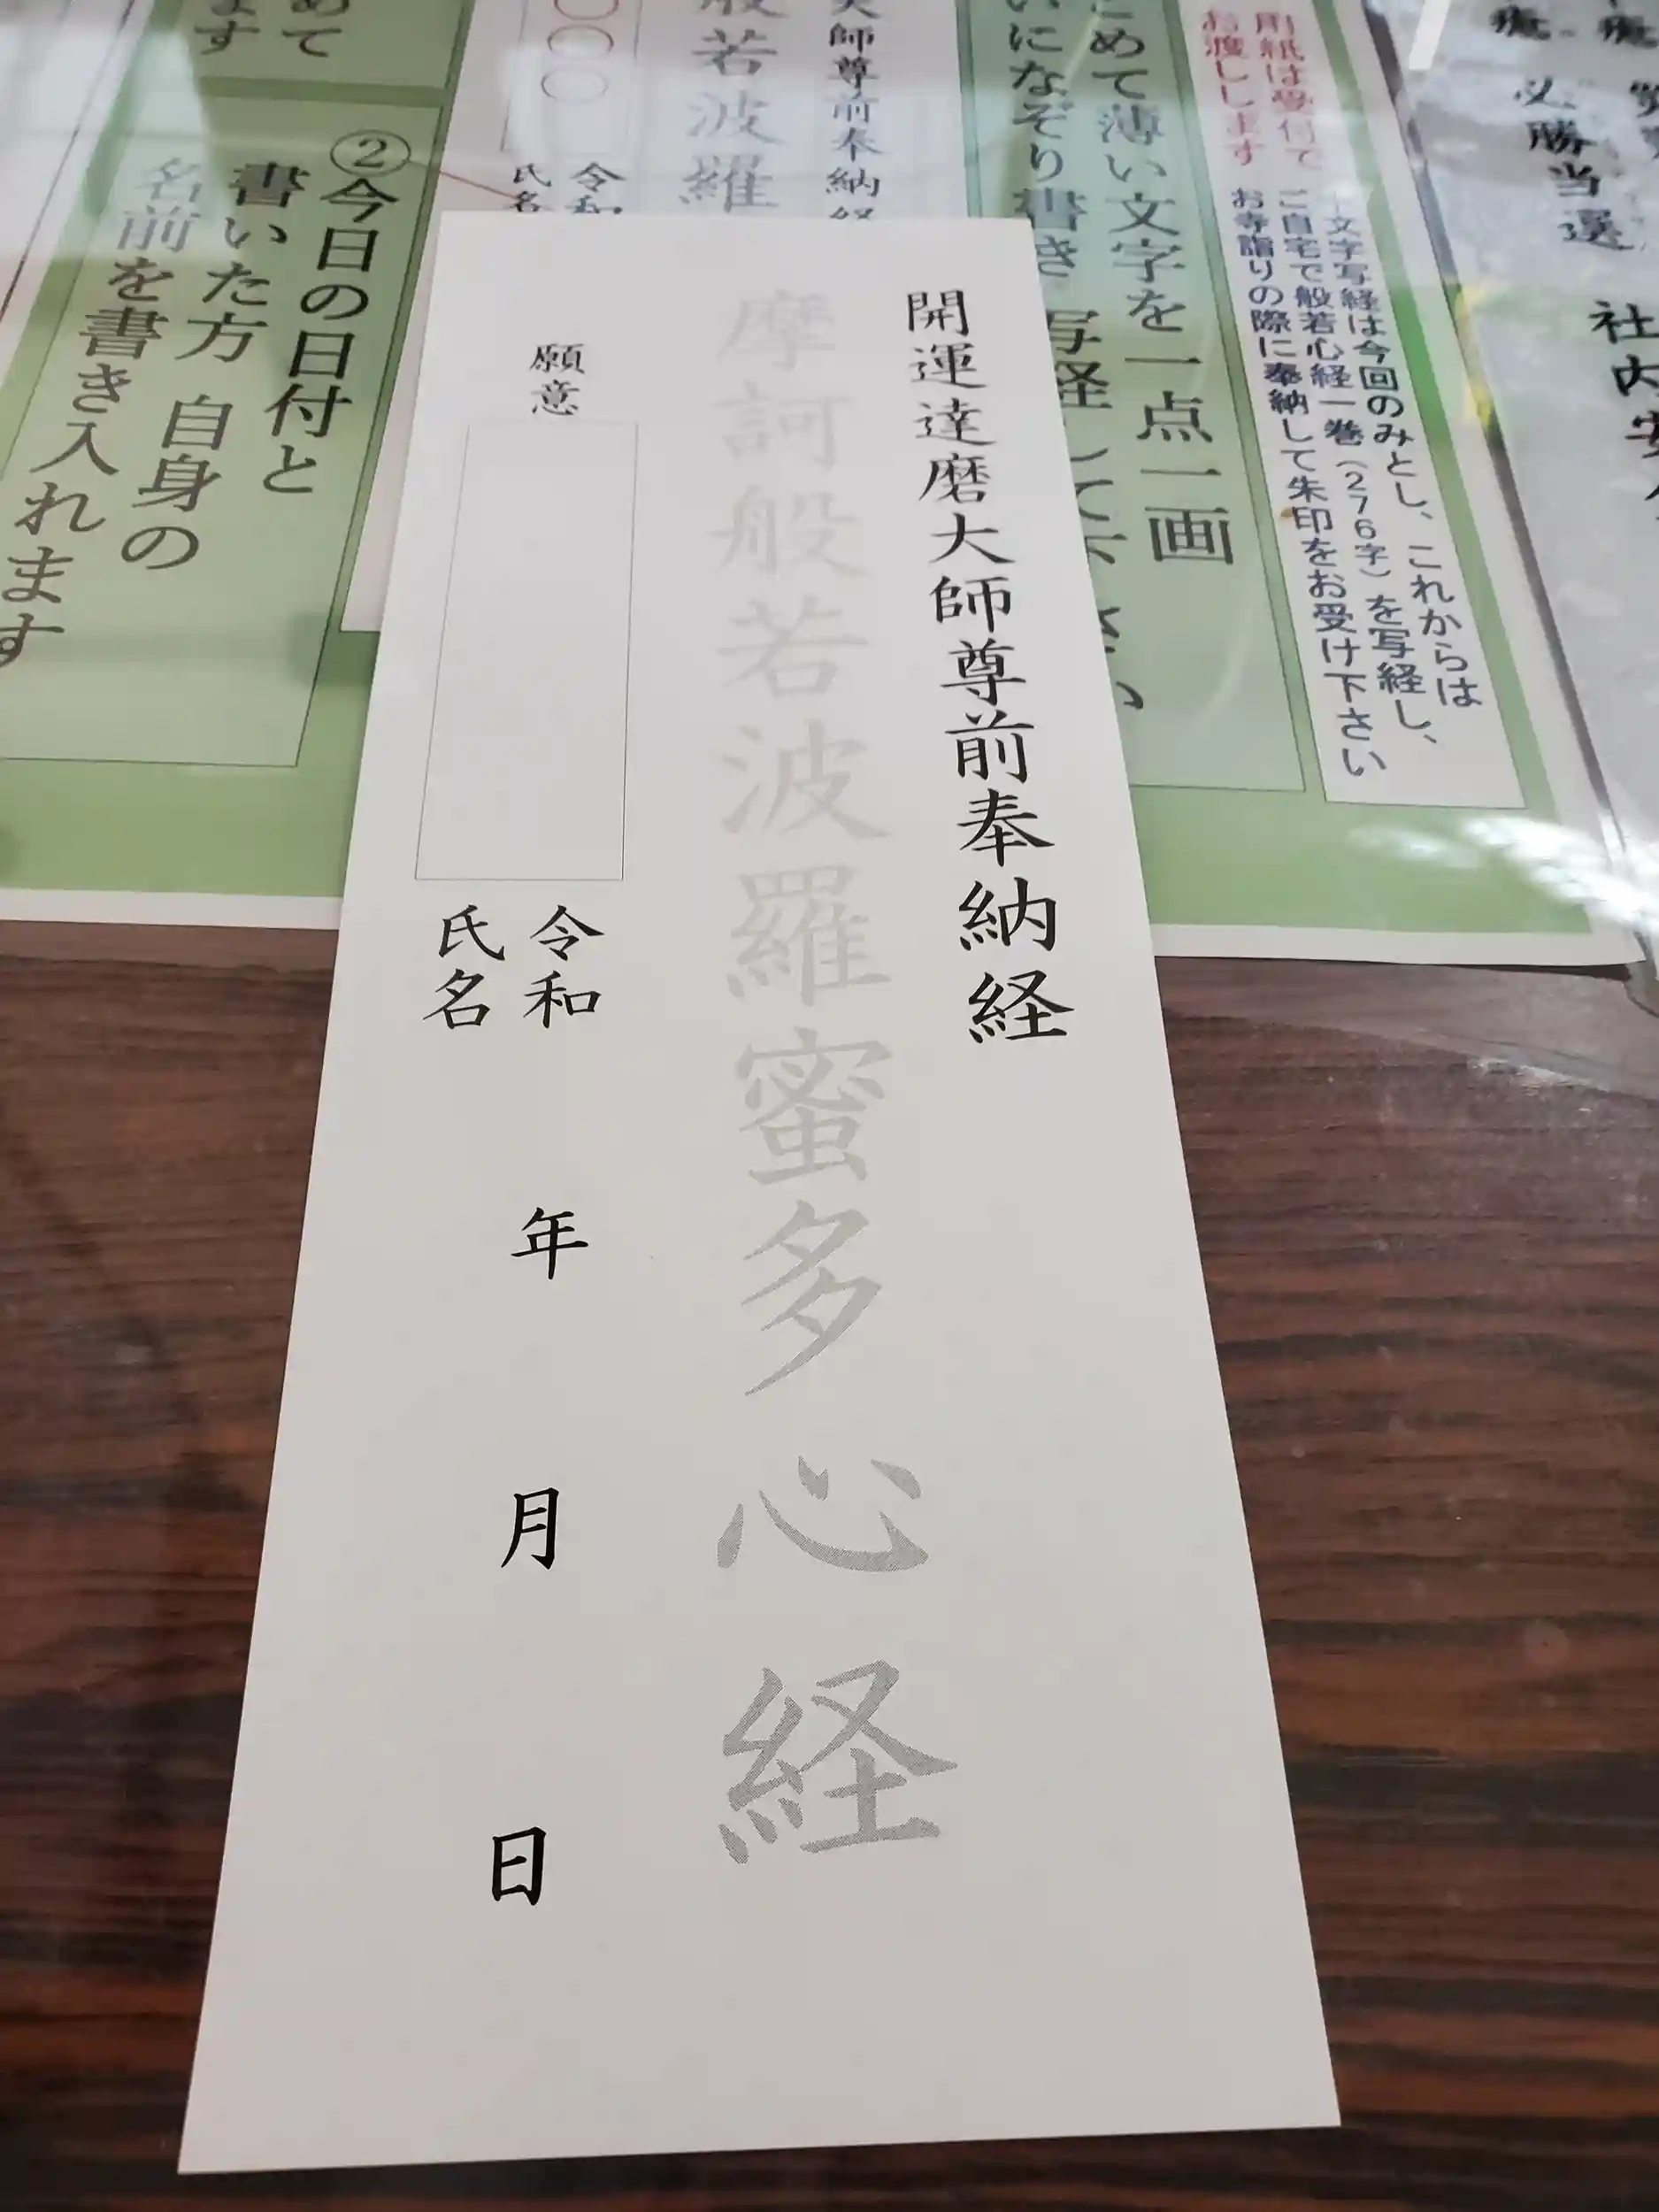 開運達磨大師尊前奉納経
摩訶般若波羅蜜多心経
願意
令和 年 月 日
氏名
必勝当選
社内安
用紙は受付て
お渡しします
一文字写経は今回のみとし、これからは
ご自宅で般若心経一巻（276字）を写経し、
お寺詣りの際に奉納して朱印をお受け下さい
こめて薄い文字を一点一画
いになぞり書き 写経して下さい
大師尊前奉納経
般若波羅
〇〇〇
令和
氏名
めて
ます
②今日の日付と
書いた方 自身の
名前を書き入れます